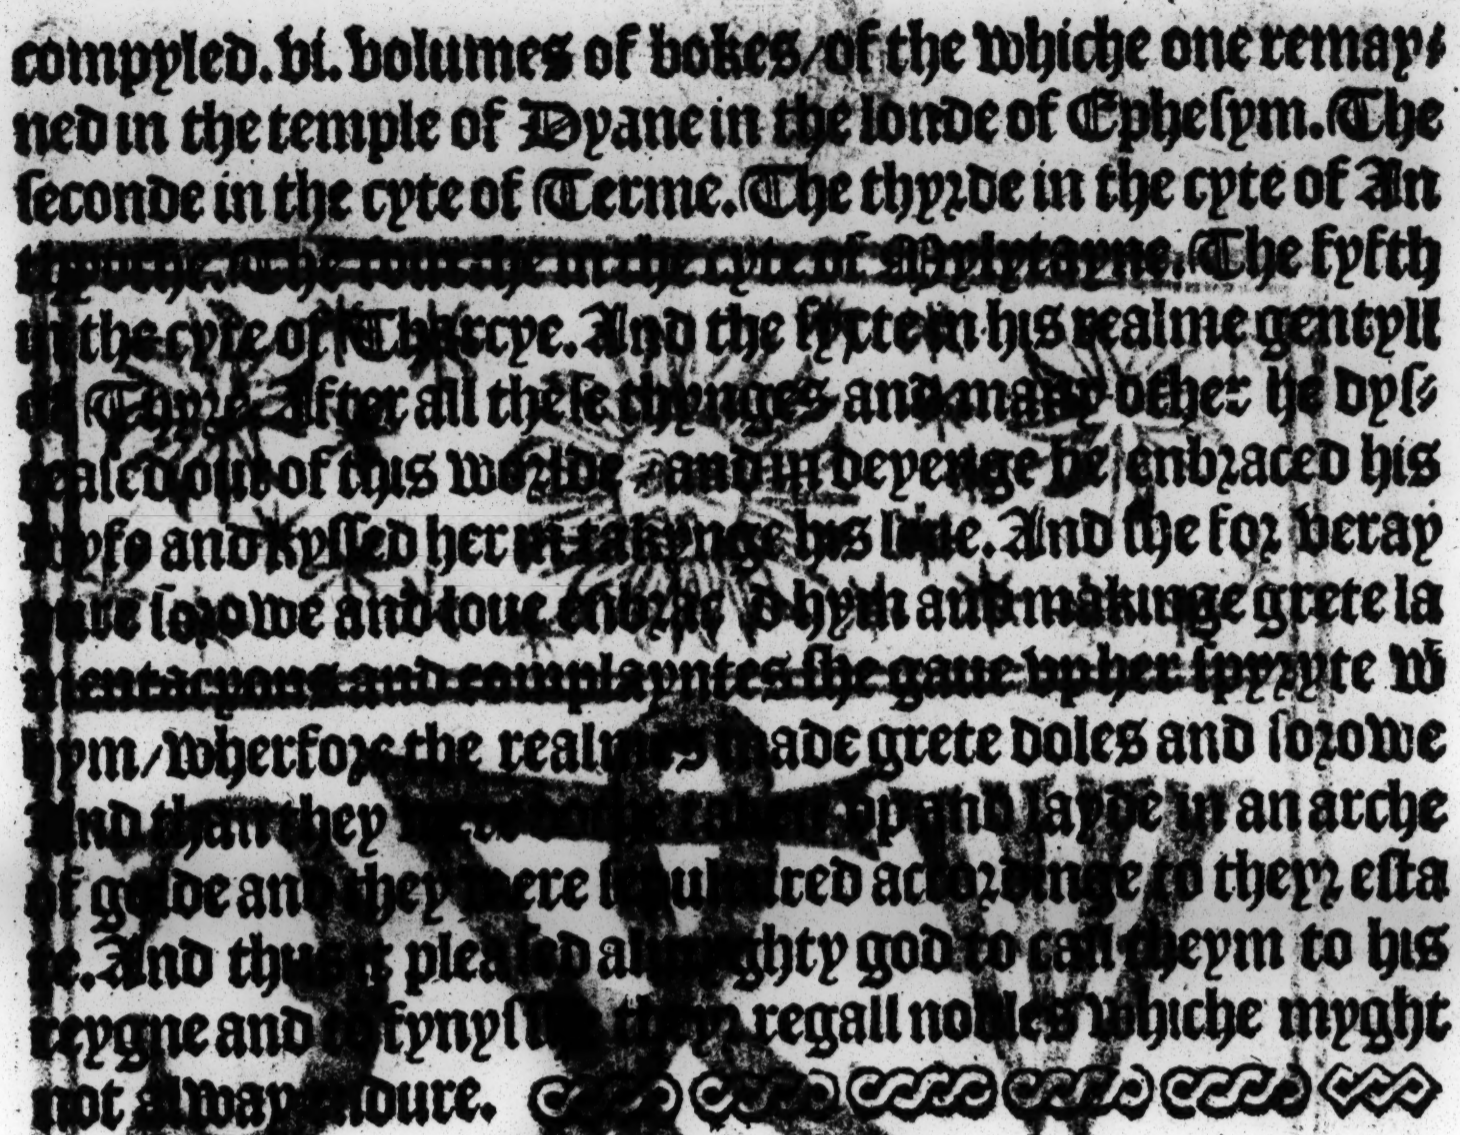 compyled. vi. volumes of bokes / of the whiche one remay⸗
ned in the temple of Dyane in the londe of Ephesym. The
seconde in the cyte of Terme. The thyrde in the cyte of An
tyoche. The fourthe in the cyte of Mylytayne. The fyfth
in the cyte of Tharcye. And the syxte in his realme gentyll
of Thyre. After all these thynges and many other he dys⸗
ceased out of this worlde / and in deyenge he enbraced his
wyfe and kyssed her in takynge his leue. And she for veray
pure sorowe and loue enbraced hym and makinge grete la
mentacyons and complayntes she gaue vp her spyryte w̄
hym / wherfore the realmes made grete doles and sorowe
And than they were bothe taken vp and layde in an arche
of golde and they were sepultured accordinge to theyr esta
te. And thus it pleased almyghty god to call theym to his
reygne and to fynysshe theyr regall nobles whiche myght
not alway endure.